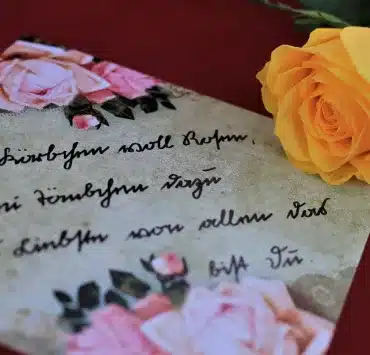 Körbchen voll Rosen,
ei Täubchen dazu
Liebste von allen das
bist Du.